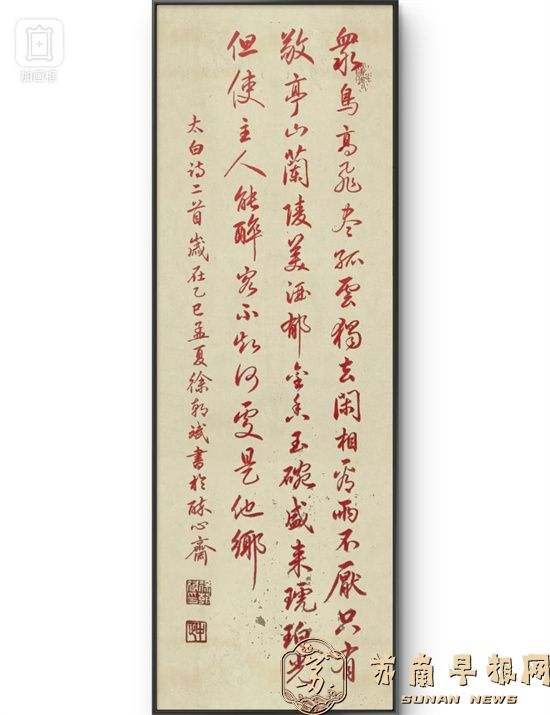 加画框
衆鳥高飛盡孤雲獨去閑相看兩不厭只有
敬亭山蘭陵美酒郁金香玉碗盛来琥珀光
但使主人能醉客不知何處是他鄉
太白诗二首歲在乙巳孟夏徐朝斌書於心齋
苏南早报网
SUNAN NEWS